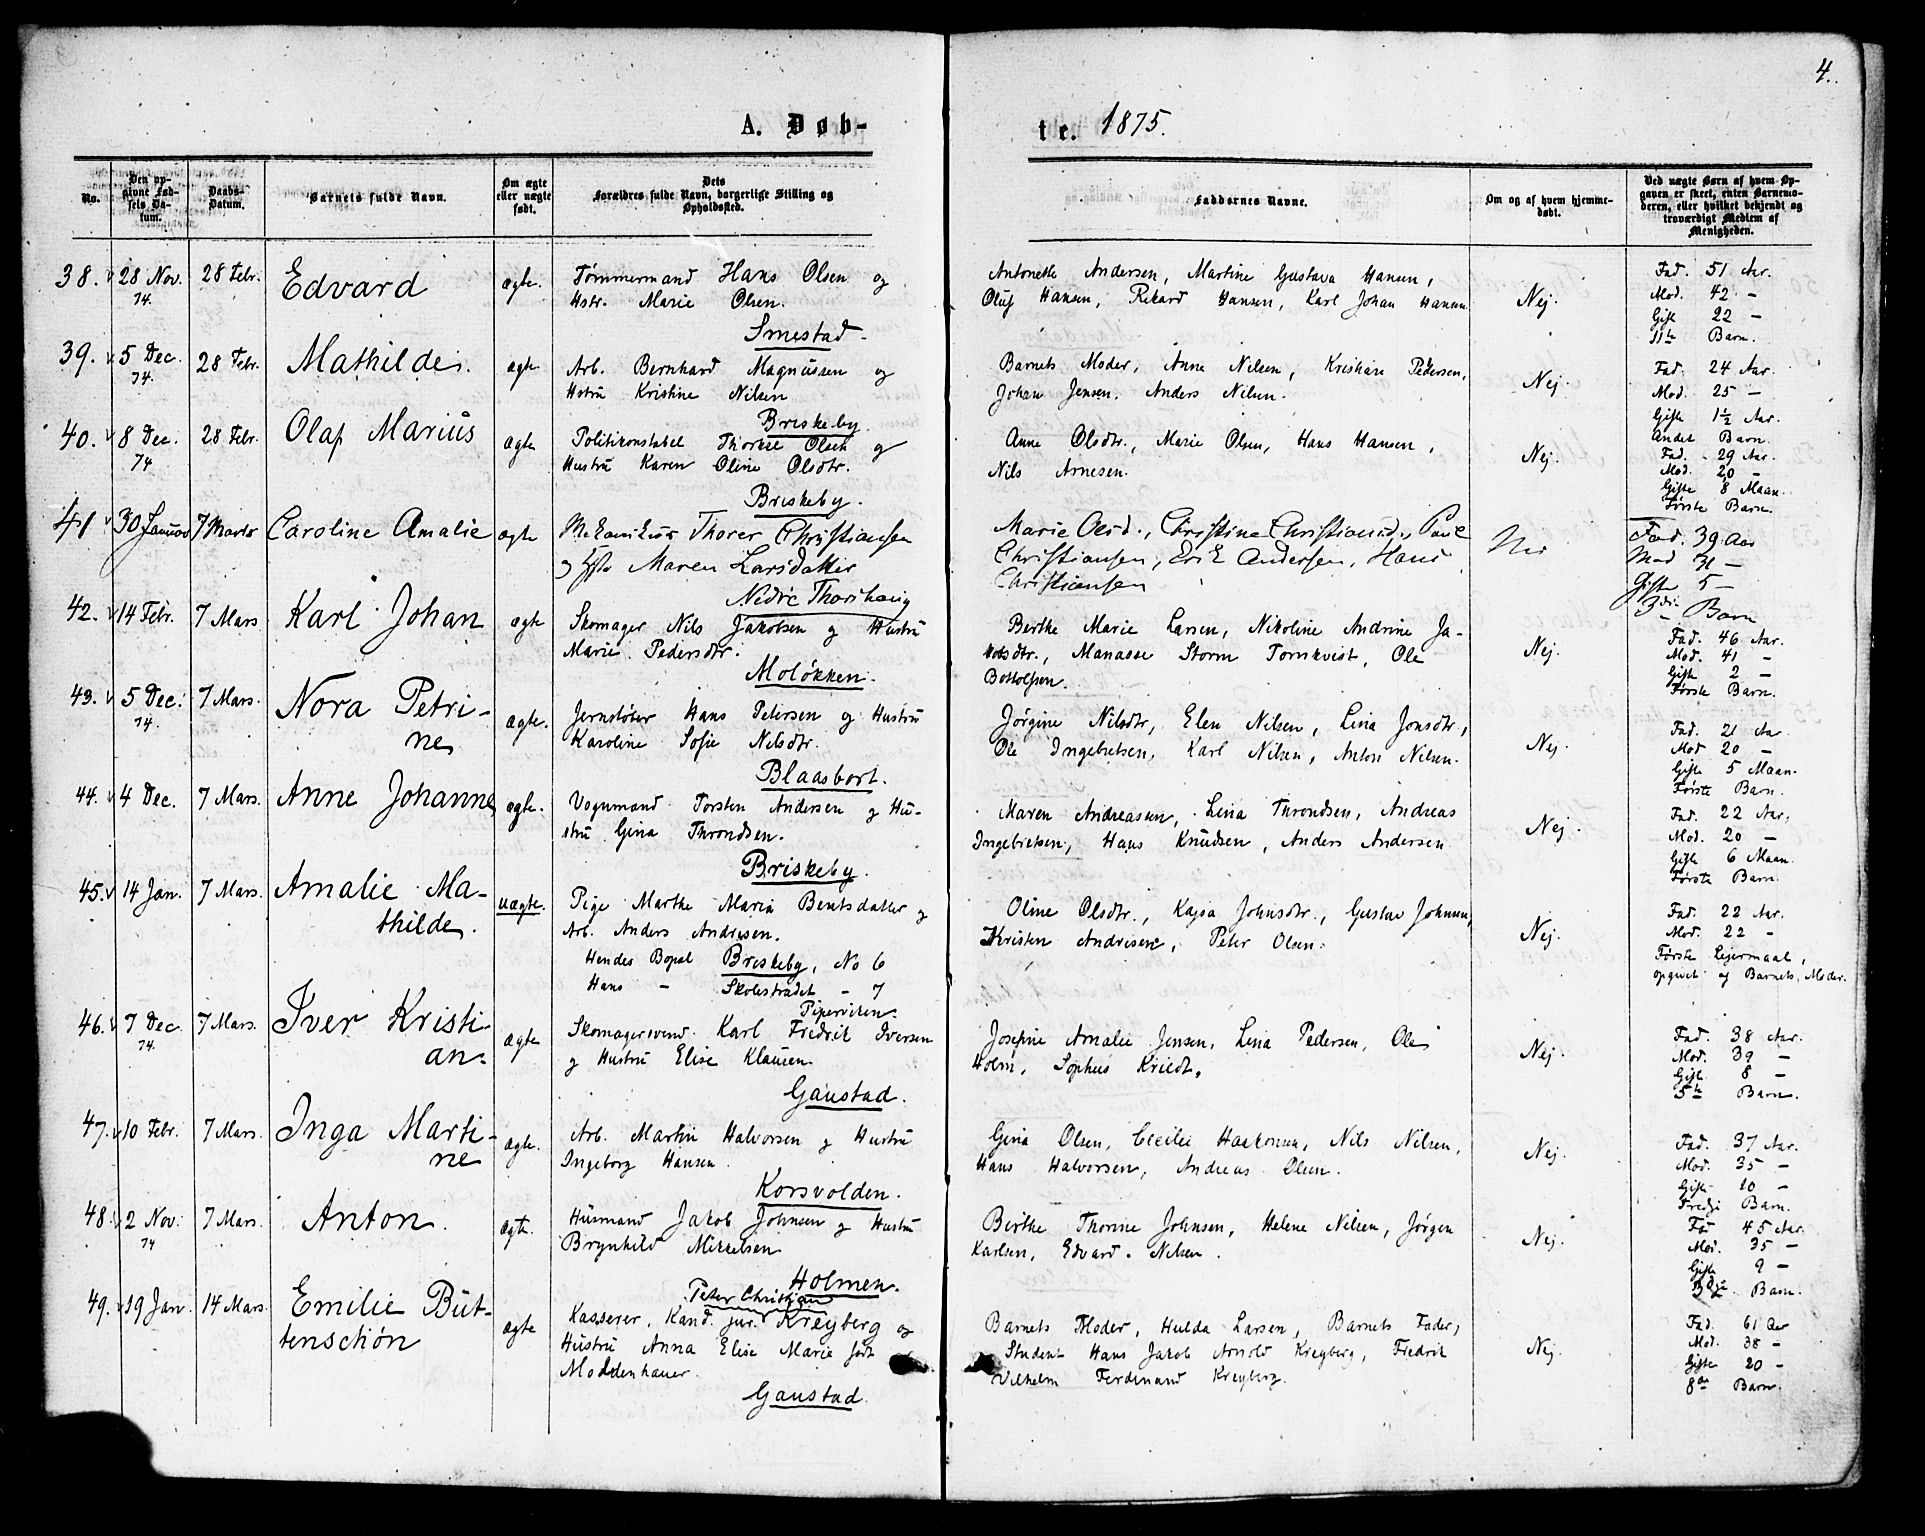 4.
A. Døb-
te. 1875.
No.
Den op-
givne Fød-
sels Da-
tum.
Daabs-
Datum.
Barnets fulde Navn.
Om ægte
eller uægte
født.
Dets
Forældres fulde Navn, borgerlige Stilling og
Opholdssted.
Faddernes Navne.
Om og af hvem hjemme-
døbt.
Ved uægte Børn af hvem Op-
gaven er skeet, enten Barnemo-
deren, eller hvilket bekjendt og
troværdigt Medlem af
Menigheden.
38. 28 Nov. 74. 28 Febr. Edvard ægte.
Tømmermand Hans Olsen og
Hstr. Marie Olsen.
Smestad.
Antonette Andersen, Martine Gustava Hansen,
Oluf Hansen, Rikard Hansen, Karl Johan Hansen
Nej.
Fad. 51 Aar.
Mod. 42 –
Gift 22 –
11te Barn.
39. 5 Dec. 74. 28 Febr. Mathilde. ægte
Arb. Bernhard Magnussen og
Hstru Kristine Nilsen
Briskeby.
Barnets Moder, Anne Nilsen, Kristiane Pedersen,
Johan Jensen. Anders Nilsen.
Nej.
Fad. 24 Aar.
Mod. 25 –
Gifte 1½ Aar.
Andet Barn.
40. 8 Dec. 74 28 Febr. Olaf Marius ægte
Politikonstabel Thorkel Olsen og
Hustru Karen Oline Olsdtr.
Briskeby.
Anne Olsdtr., Marie Olsen, Hans Hansen,
Nils Arnesen.
Nej.
Fad. 29 Aar.
Mod. 20 –
Gifte 8 Maan.
Første Barn.
41 30 Januar 7 Marts Caroline Amalie ægte
Mekanikus Thorer Christiansen
og Maren Larsdatter
Nedre Thorshaug
Marie Olsd., Christine Christiansd., Paul
Christiansen, Erik Andersen, Hans
Christiansen
Nei
Fad. 39 Aar
Mod 31 –
Gifte 5 –
3die Barn
42. 14 Febr. 7 Mars Karl Johan ægte
Skomager Nils Jakobsen og Hustru
Marie Pedersdtr.
Moløkken.
Berthe Marie Larsen, Nikoline Andrine Ja-
kobsdtr., Manasse Storm Tornkvist, Ole
Bottolfsen.
Nej.
Fad. 46 Aar.
Mod. 41 –
Gifte 2 –
Første Barn.
43. 5 Dec. 74. 7 Mars. Nora Petri-
ne ægte.
Jernstøber Hans Petersen og Hustru
Karoline Sofie Nilsdtr.
Blaasbort.
Jørgine Nilsdtr, Elen Nilsen, Lina Jonsdtr,
Ole Ingebretsen, Karl Nilsen, Anton Nilsen.
Nej.
Fad. 21 Aar
Mod 20 –
Gifte 5 Maan.
Første Barn.
44. 4 Dec. 7 Mars. Anne Johanne ægte.
Vognmand Torsten Andersen og Hu-
stru Gina Throndsen.
Briskeby.
Maren Andreassen, Lina Throndsen, Andreas
Ingebretsen, Hans Knudsen, Anders Andersen
Nej.
Fad. 22 Aar.
Mod. 20 –
Gifte 6 Maan.
Første Barn.
45. 14 Jan. 7 Mars. Amalie Ma-
thilde. uægte.
Pige Marthe Maria Bentsdatter og
Arb. Anders Andresen.
Hendes Bopæl Briskeby, No 6
Hans – Skolestrædet – 7
Pipervigen.
Oline Olsdtr., Kajsa Johnsdtr., Gustav Johnsen,
Kristen Andresen, Peter Olsen.
Nej.
Fad. 22 Aar.
Mod. 22 –
Første Lejermaal,
opgivet af Barnets Moder.
46. 7 Dec. 74. 7 Mars. Iver Kristi-
an. ægte
Skomagersvend Karl Fredrik Iversen
og Hustru Elise Klausen.
Gaustad.
Josefine Amalie Jensen, Lina Pedersen, Ole
Holm, Sophus Krieldt.
Nej.
Fad. 38 Aar.
Mod. 39 –
Gift 8 –
5te Barn.
47. 10 Febr. 7 Mars. Inga Marti-
ne ægte.
Arb. Martin Halvorsen og Hustru
Ingeborg Hansen.
Korsvolden.
Gina Olsen, Cecilie Haakonsen, Nils Nilsen,
Hans Halvorsen, Andreas Olsen.
Nej.
Fad. 37 Aar.
Mod. 35 –
Gifte 10 –
Tredje Barn.
48. 2 Nov. 74 7 Mars. Anton. ægte.
Husmand Jakob Johnsen og Hustru
Brynhild Mikkelsen
Holmen.
Birthe Thorine Johnsen, Helene Nilsen, Jørgen
Karlsen, Edvard Nilsen.
Nej.
Fad 45 Aar.
Mod. 35 –
Gifte 9 –
3die Barn.
49. 19 Jan. 14 Mars. Emilie But-
tenschøn ægte
Peter Christian
Kasserer, Kand. jur. Kreyberg og
Hustru Anna Elise Marie født
Moldenhauer.
Gaustad.
Barnets Moder, Hulda Larsen, Barnets Fader,
Student Hans Jakob Arnold Kreyberg, Fredrik
Vilhelm Ferdinand Kreyberg.
Nej.
Fad. 61 Aar
Mod. 38 –
Gifte 20 –
8de Barn.